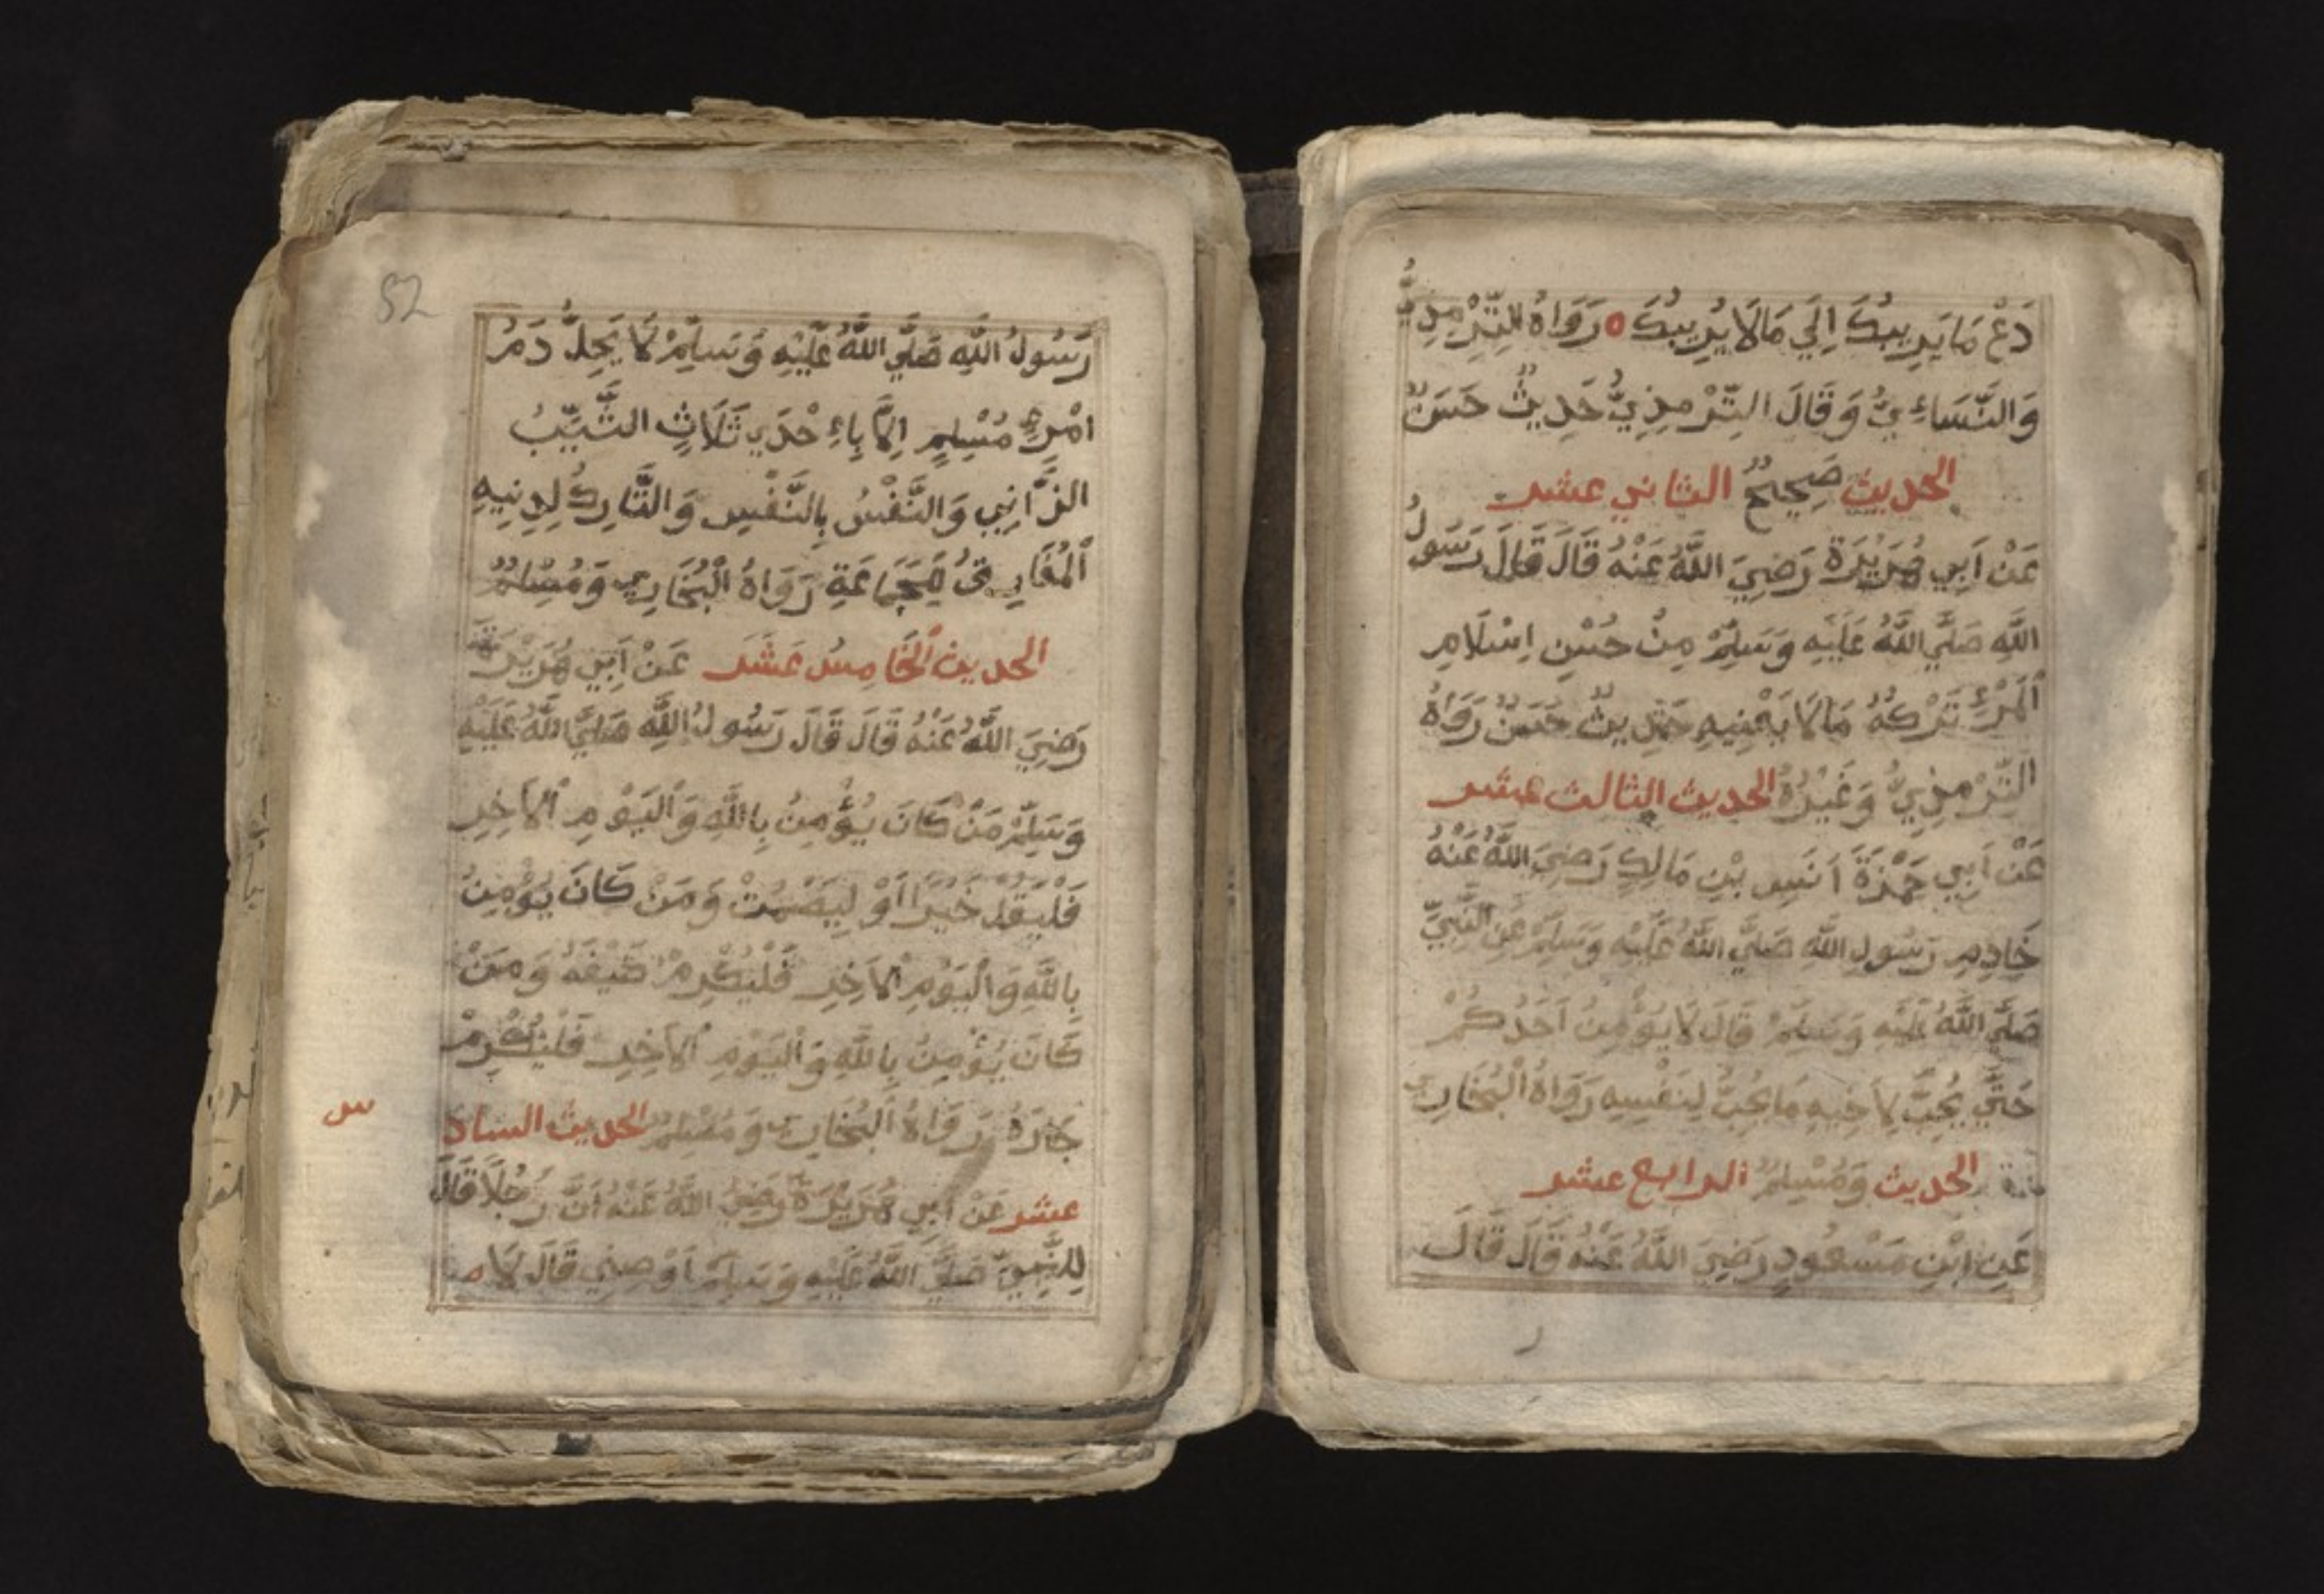 دَعْ مَا يَرِيبُكَ اِلَي مَالَا يُرِيبُكَ ه رَوَاهُ التِّرْمِذِيُّ
وَالنَّسَاءِيُّ وَقَالَ التِّرْمِذِيُّ حَدِيثٌ حَسَنٌ
الحديث صَحِيحٌ الثاني عشر
عَنْ اَبِي هُرَيْرَةَ رَضِيَ اللَّهُ عَنْهُ قَالَ قَالَ رَسُولُ
اللَّهِ صَلَّي اللَّهُ عَلَيْهِ وَسَلَّمْ مِنْ حُسْنِ اِسْلَامِ
الْمَرْءِ تَرْكُهُ مَالَا يَعْنِيهِ حَدِيثٌ حَسَنٌ رَوَاهُ
التِّرْمِذِيُّ وَغَيْرُهُ الحديث الثالث عشر
عَنْ اَبِي حَمْزَةَ اَنَسِ بْنِ مَالِكٍ رَضِيَ اللَّهُ عَنْهُ
خَادِمِ رَسُولِ اللَّهِ صَلَّي اللَّهُ عَلَيْهِ وَسَلَّمْ عَنِ النَّبِيِّ
صَلَّي اللَّهُ عَلَيْهِ وَسَلَّمْ قَالَ لَا يُؤْمِنُ اَحَدُكُمْ
حَتَّي يُحِبَّ لِاَخِيهِ مَا يُحِبُّ لِنَفْسِهِ رَوَاهُ الْبُخَارِي
الحديث وَمُسْلِمٌ الرابع عشر
عَنِ ابْنِ مَسْعُودٍ رَضِيَ اللَّهُ عَنْهُ قَالَ قَالَ
ر
52
رَسُولُ اللَّهِ صَلَّي اللَّهُ عَلَيْهِ وَسَلَّمْ لَا يَحِلُّ دَمُ
امْرِءٍ مُسْلِمٍ اِلَّا بِاءِحْدَي ثَلَاثٍ الثَّيِّبُ
الزَّانِي وَالنَّفْسُ بِالنَّفْسِ وَالتَّارِكُ لِدِنِيهِ
الْمُفَارِقُ لِلْجَمَاعَةِ رَوَاهُ الْبُخَارِي وَمُسْلِمٌ
الحديث الْخَامِسُ عَشَر عَنْ اَبِي هُرَيْرَةَ
رَضِيَ اللَّهُ عَنْهُ قَالَ قَالَ رَسُولُ اللَّهِ صَلَّي اللَّهُ عَلَيْهِ
وَسَلَّمْ مَنْ كَانَ يُؤْمِنُ بِاللَّهِ وَالْيَوْمِ الْاَخِرِ
فَلْيَقُلْ خَيْرًا اَوْ لِيَصْمُتْ وَمَنْ كَانَ يُؤْمِنُ
بِاللَّهِ وَالْيَوْمِ الْاَخِرِ فَلْيُكْرِمْ ضَيْفَهُ وَمَنْ
كَانَ يُؤْمِنُ بِاللَّهِ وَالْيَوْمِ الْاَخِرِ فَلْيُكْرِمْ
جَارَهُ رَوَاهُ الْبُخَارِي وَمُسْلِمٌ الحديث الساد
س
عشر عَنْ اَبِي هُرَيْرَةَ رَضِيَ اللَّهُ عَنْهُ اَنَّ رَجُلًا قَالَ
لِلنَّبِيِّ صَلَّي اللَّهُ عَلَيْهِ وَسَلَّمَ اَوْصِنِي قَالَ لَا